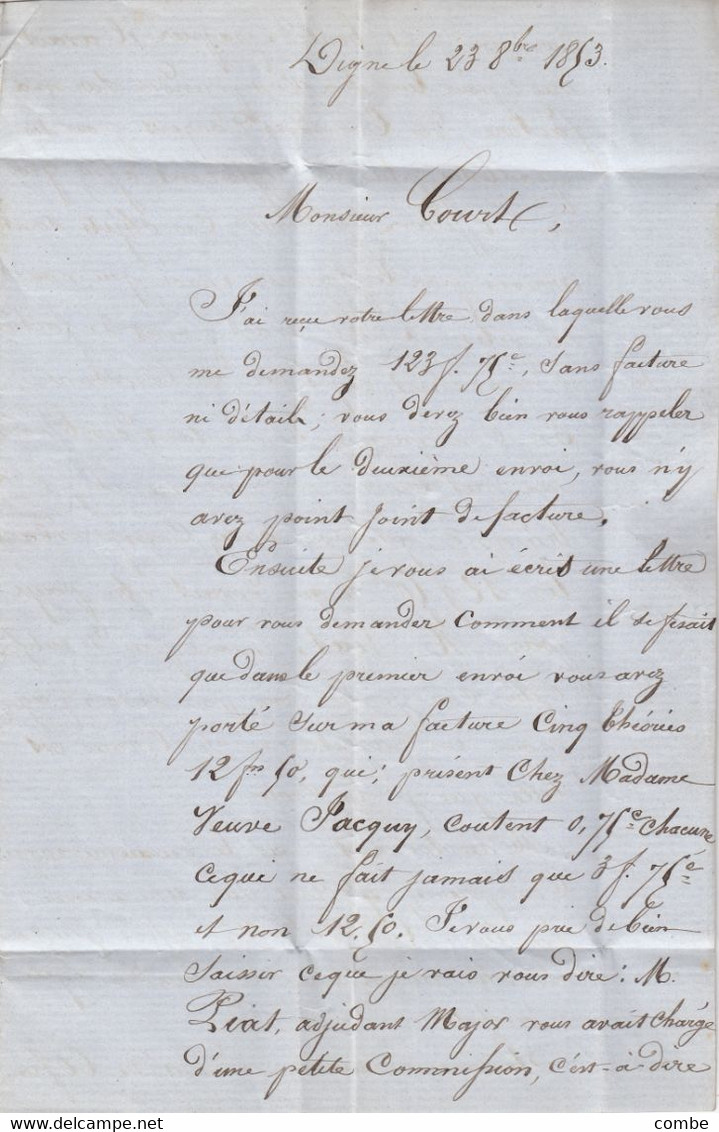 Digne le 23 8bre 1853.
Monsieur Court,
J'ai reçu votre lettre dans laquelle vous
me demandez 123f. 75c, sans facture
ni détail; vous devez bien vous rappeler
que pour le deuxième envoi, vous n'y
avez point joint de facture.
Ensuite je vous ai écrit une lettre
pour vous demander comment il se fesait
que dans le premier envoi vous avez
porté sur ma facture cinq théories
12 f 50, qui; présent chez Madame
Veuve Jacquy, coutent 0,75c chacune
ce qui ne fait jamais que 3f. 75c
et non 12.50. Je vous prie de bien
saissir ce que je vais vous dire: M.
Piat, adjudant Major vous avait chargé
d'une petite Commission, c'est-à-dire
combe